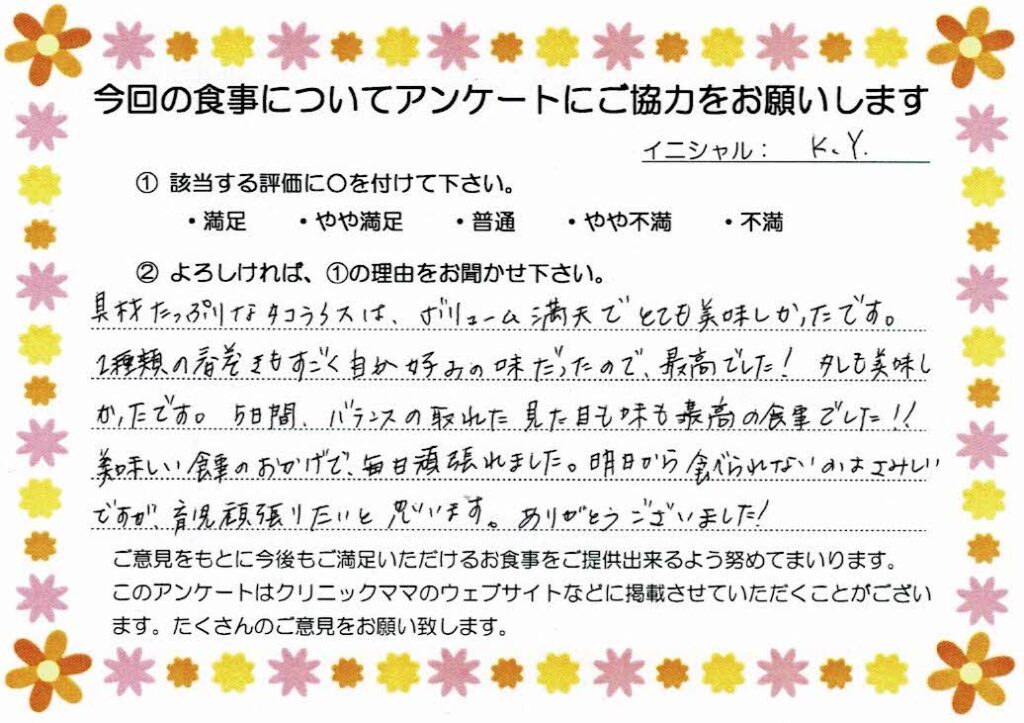 今回の食事についてアンケートにご協力をお願いします
イニシャル： K.Y.
① 該当する評価に〇を付けて下さい。
・満足 ・やや満足 ・普通 ・やや不満 ・不満
② よろしければ、①の理由をお聞かせ下さい。
具材たっぷりなタコライスは、ボリューム満天でとても美味しかったです。
2種類の春巻きもすごく自分好みの味だったので、最高でした! タレも美味し
かったです。5日間、バランスの取れた見た目も味も最高の食事でした!!
美味しい食事のおかげで、毎日頑張れました。明日から食べられないのはさみしい
ですが、育児頑張りたいと思います。ありがとうございました!
ご意見をもとに今後もご満足いただけるお食事をご提供出来るよう努めてまいります。
このアンケートはクリニックママのウェブサイトなどに掲載させていただくことがござい
ます。たくさんのご意見をお願い致します。